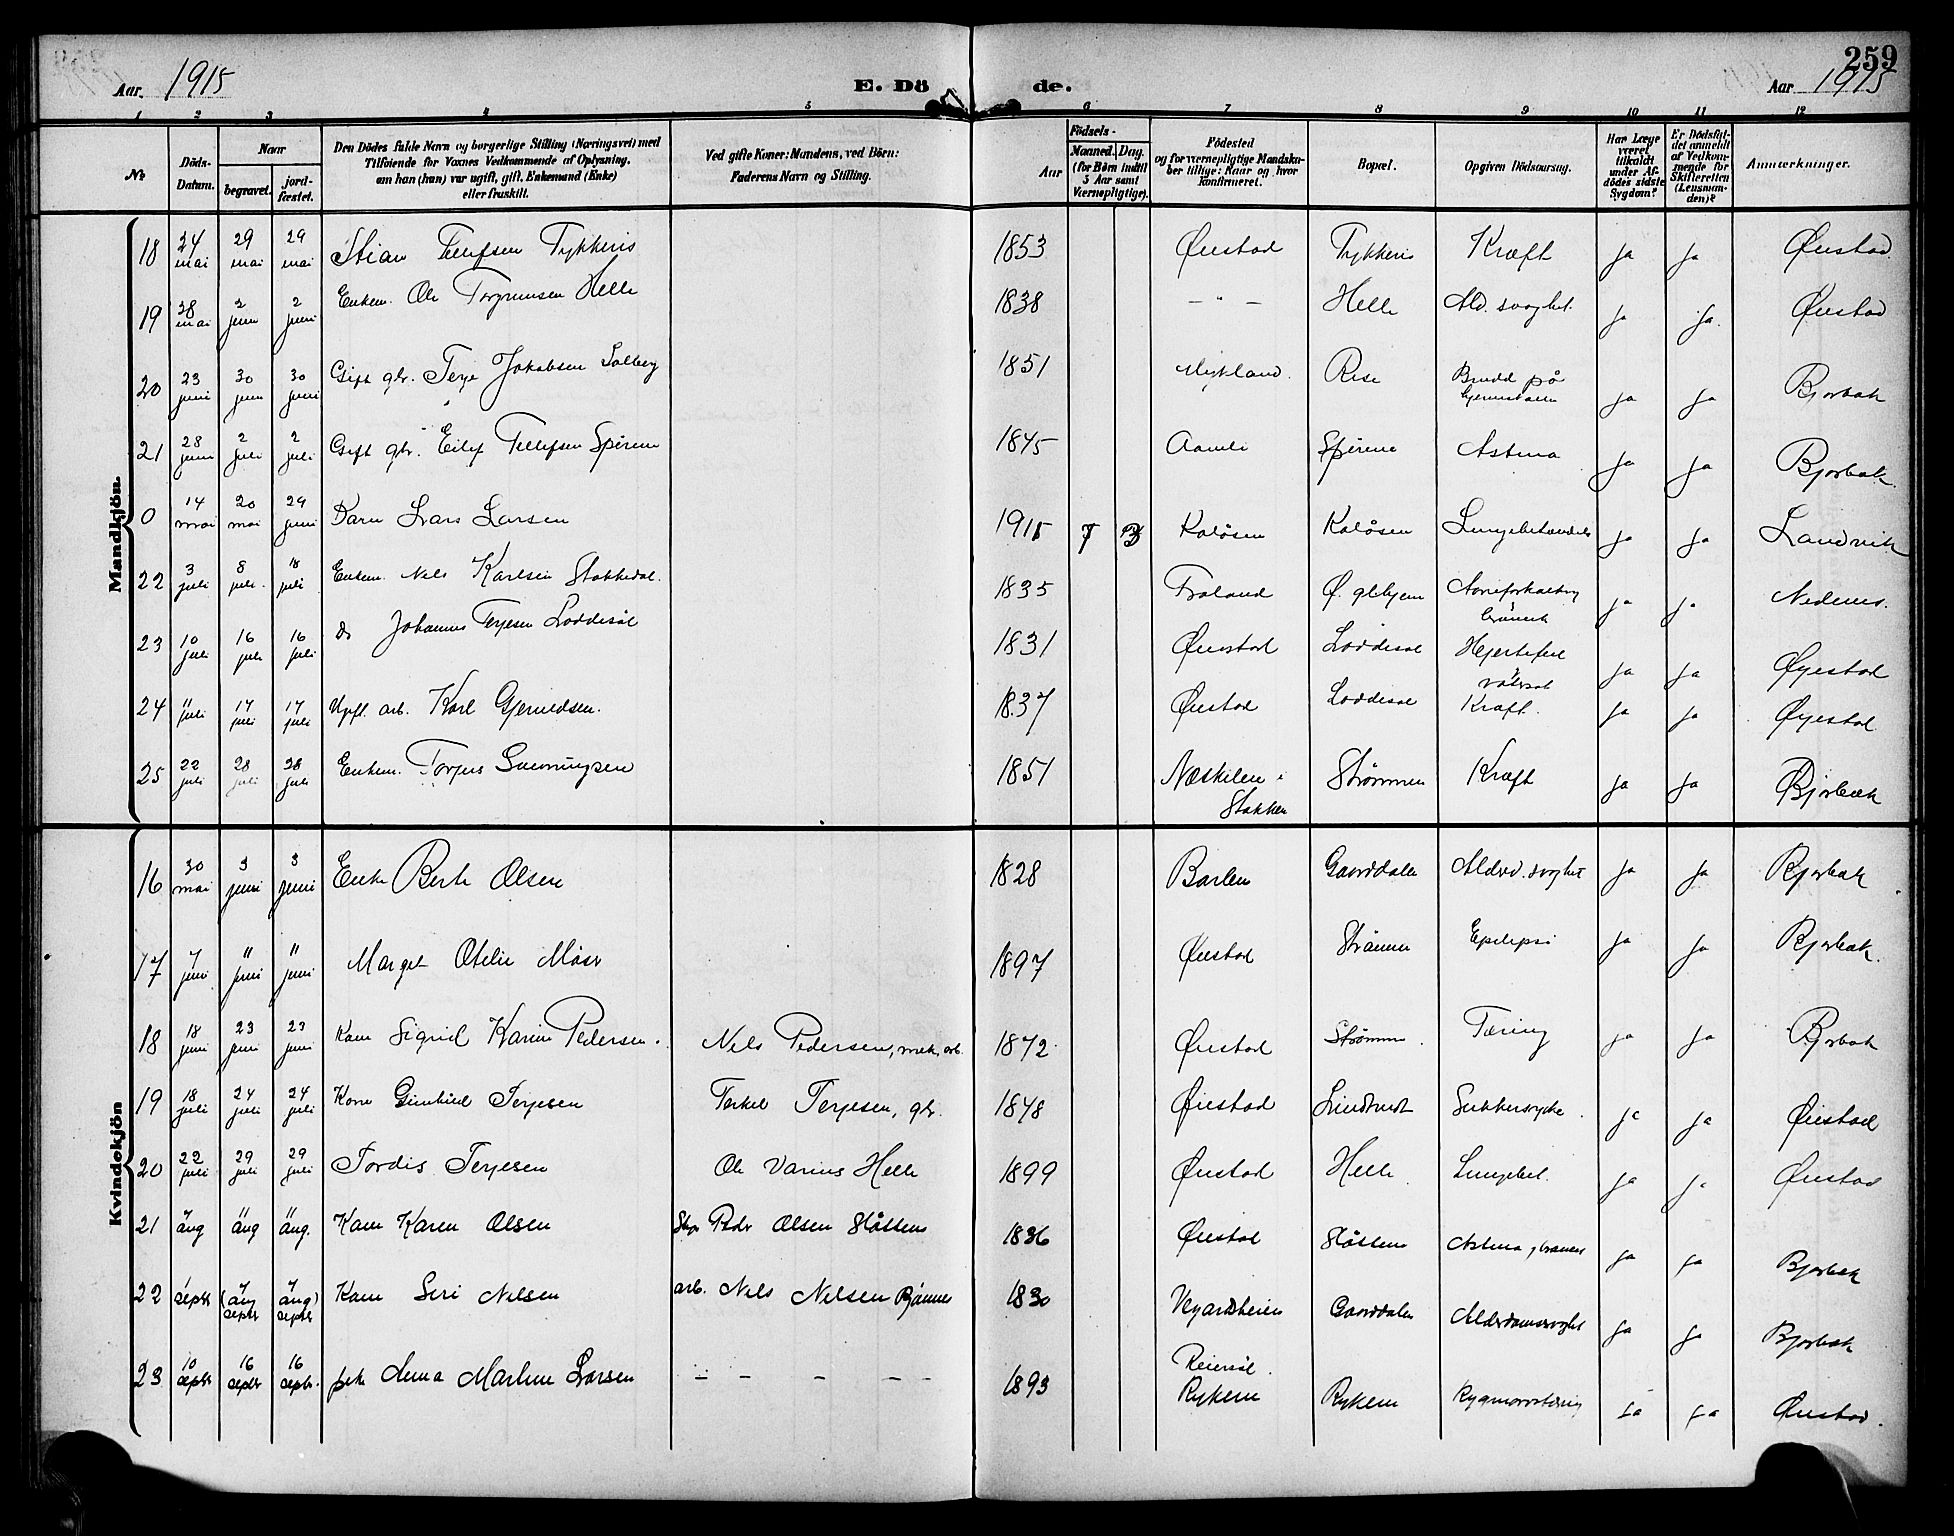 259
Aar. 1915 E. Dö de. Aar 1915
1 2 3 4 5 6 7 8 9 10 11 12
No
Döds-Datum.
Naar
begravet.
jord-fæstet.
Den Dödes fulde Navn og borgerlige Stilling (Næringsvei) med
Tilföiende for Voxnes Vedkommende af Oplysning,
om han (hun) var ugift, gift, Enkemand (Enke)
eller fraskilt.
Ved gifte Koner: Mandens, ved Börn:
Faderens Navn og Stilling.
Födsels-
Aar
Maaned. Dag.
(for Børn indtil
5 Aar samt
Værnepligtige).
Födested
og for værnepligtige Mandska-
ber tillige: Naar og hvor
konfirmeret.
Bopæl.
Opgiven Dödsaarsag.
Har Læge
været
tilkaldt
under Af-
dödes sidste
Sygdom?
Er Dödsfal-
det anmeldt
af Vedkom-
mende for
Skifteretten
(Lensman-
den)?
Anmærkninger.
Mandkjön.
18 24 mai 29 mai 29 mai Stian Tellefsen Tykkeris 1853 Øiestad Tykkeris Kræft Ja Ja Øiestad
19 28 mai 2 juni 2 juni Enkem. Ole Torgrimsen Helle 1838 — " — Helle Ald. svaghet. Ja Ja. Øiestad
20 23 juni 30 juni 30 juni Gift gbr. Terje Jakobsen Solberg 1851 Mykland. Rise Brudd på Ja Ja Bjorbæk
21 28 juni 2 juli 2 juli Gift gbr. Eilef Tellefsen Spirene 1845 Aamli Spirene Astma Ja Ja Bjorbæk.
0 14 mai 20 mai 29 juni Barn Lars Larsen 1915 Kaløsen Kaløsen Lungebetændels Ja Ja Landvik
22 3 juli 8 juli. 18 juli Enkem. Nils Karlsen Stokkedal. 1835 Froland Ø. glhjem Aareforkalkning Ja Ja Nedenes.
23 10 juli 16 juli 16 juli do Johannes Terjesen Loddesøl 1831 Øiestad Loddesøl Hjertefeil Ja Ja Øyestad
24 11 juli 17 juli 17 juli Upfl. arb. Karl Gjermedsen. 1837 Øiestad Loddesøl Kræft. Ja Ja Øyestad
25 22 juli 28 juli 28 juli Enkem. Torjus Gunningsen 1851 Næskilen i Stokken Strømmen Kræft Ja Ja Bjorbæk
Kvindekjön
16 30 mai 3 juni 3 juni Enke Berte Olsen 1828 Barlen Gaarddalen Alderd. svaghet Ja Ja Bjorbæk
17 7 juni 11 juni 11 juni Margit Otelie Moser 1897 Øiestad Strømmen Epilepsi Ja Ja Bjorbæk.
18 18 juni 23 juni 23 juni Kone Sigrid Karine Pedersen. Nils Pedersen, mek. arb. 1872 Øiestad Strømmen. Tæring Ja Ja Bjorbæk
19 18 juli 24 juli 24 juli Kone Gunhild Terjesen Terkel Terjesen, gbr. 1848 Øiestad Lindtveit Sukkersyke. Ja Ja Øiestad
20 22 juli 29 juli 29 juli Tordis Terjesen Ole Varius Helle 1899 Øiestad Helle Lungebet. Ja Ja Øiestad
21 aug aug aug. Kone Karen Olsen Peder Olsen Slåttene 1836 Øiestad Slåttene Astma, Ja Ja Bjorbæk
22 septbr 7 (aug septbr 7 aug) septbr Kone Siri Nilsen arb. Nils Nilsen Bjønnes 1830 Vegardsheien Gaarddalen Alderdomssvaghet Ja Ja Bjorbæk
23 10 septbr 16 septbr 16 septbr. pike Anna Marlene Larsen — — — — — 1893 Reiersøl. Rykene Rykene Rygmarvstæring Ja Ja Øiestad.